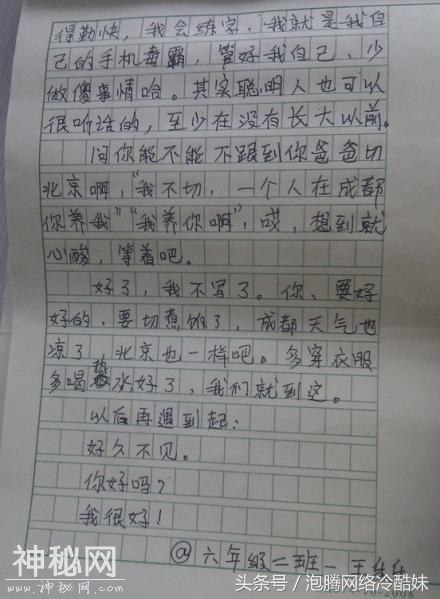 得勤快，我会练字，我就是我自
己的手机毒霸，管好我自己、少
做傻事情哈。其实聪明人也可以
很听话的，至少在没有长大以前。
问你能不能不跟到你爸爸切
北京啊，“我不切，一个人在成都
你养我”“我养你啊”，哎，想到就
心酸，等着吧。
好了，我不写了。你、要好
好的，要切煮饭了，成都天气也
凉了，北京也一样吧。多穿衣服
多喝热水好了，我们就到这。
以后再遇到起：
好久不见。
你好吗？
我很好！
@六年级二班一王
神秘网
www.神秘网.com
头条号 / 泡腾网络冷酷妹